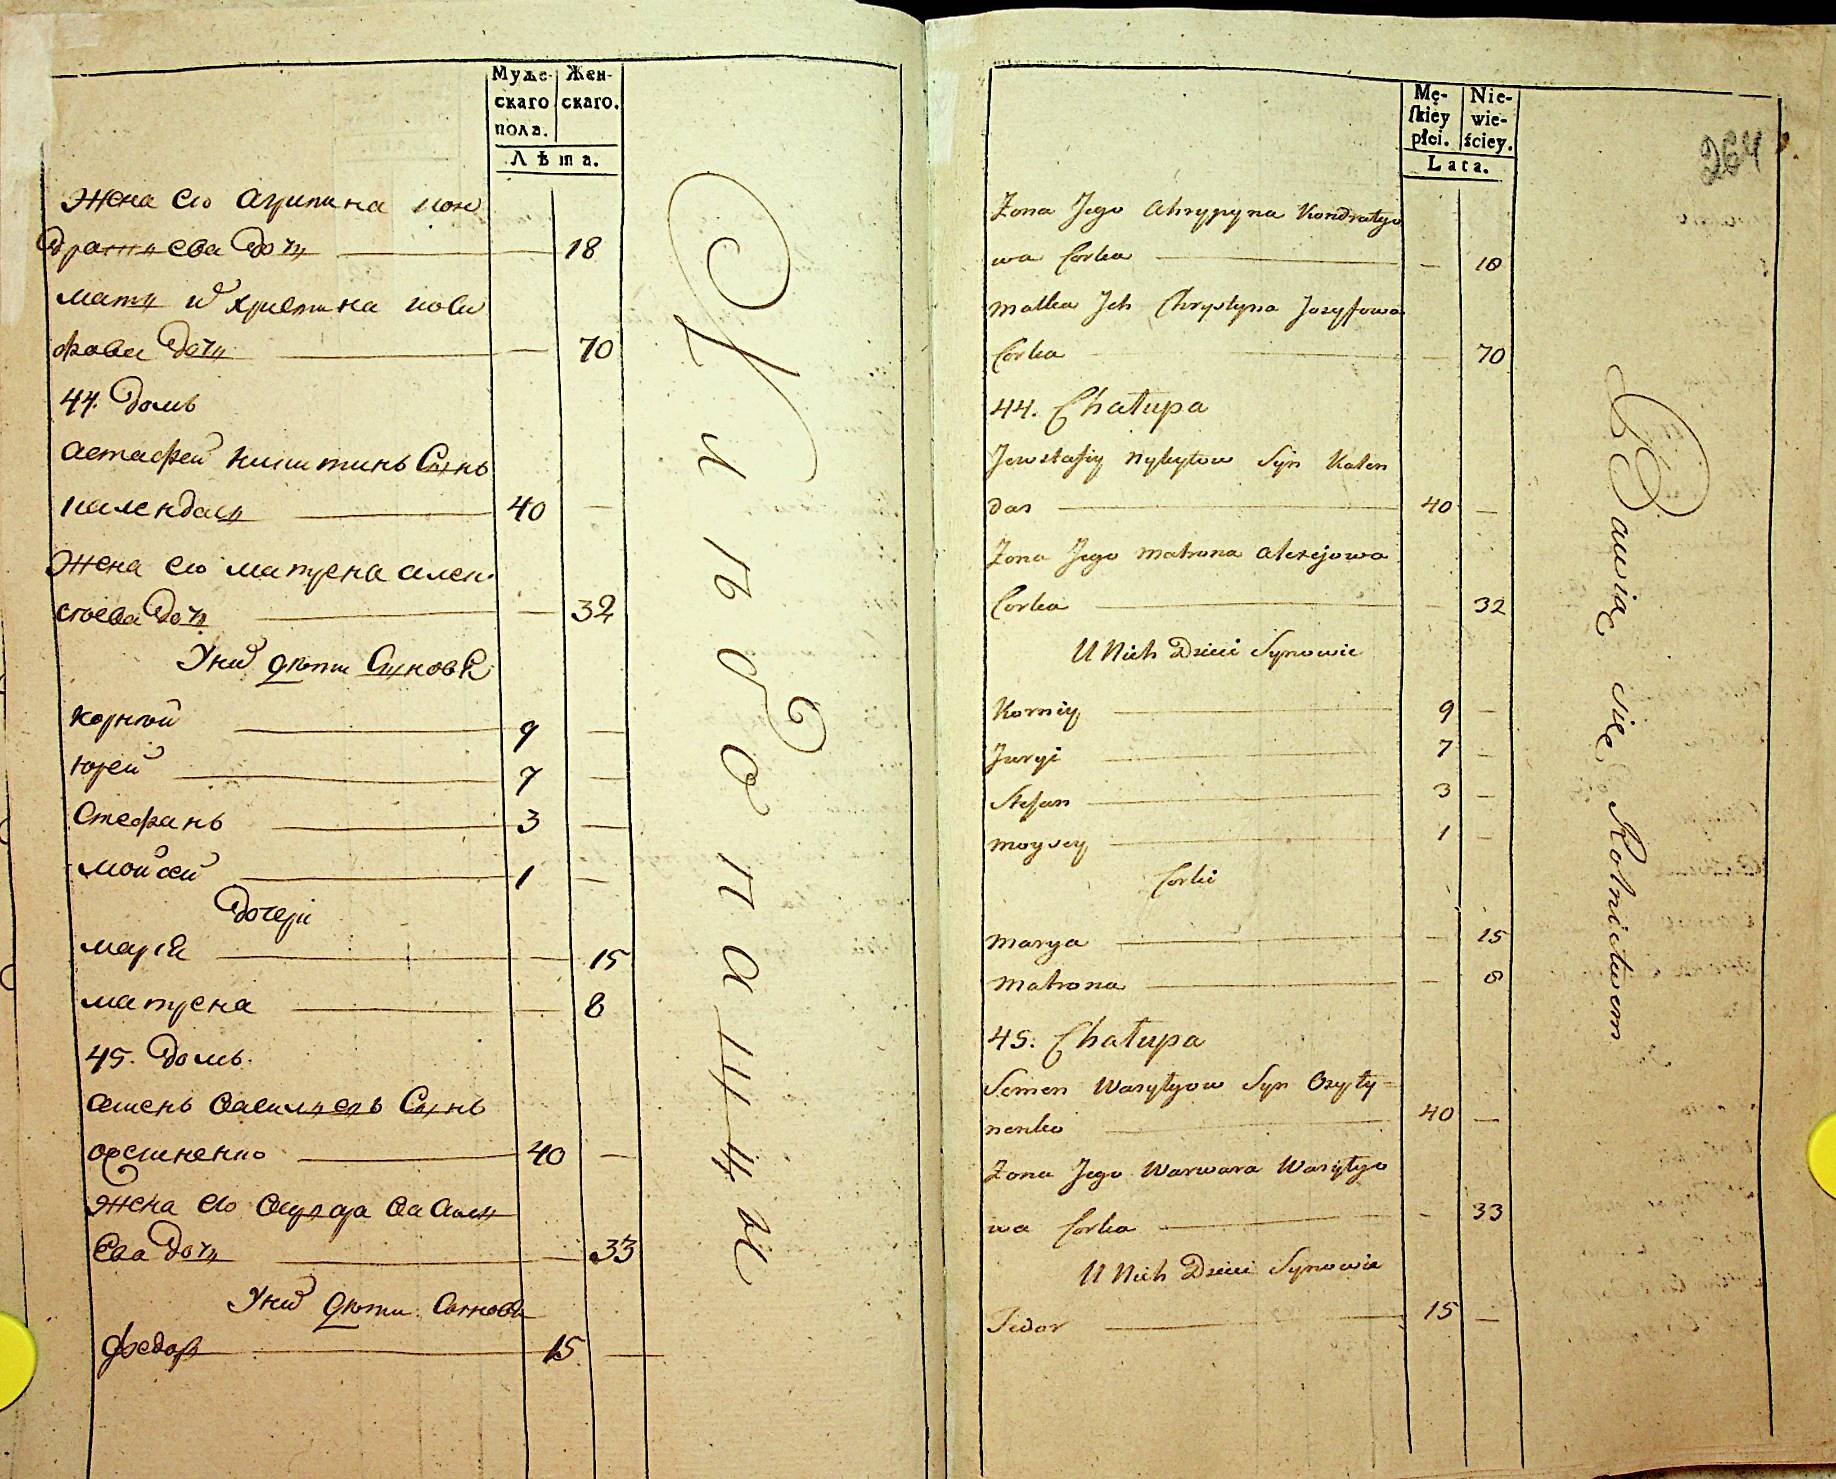 Муже-
скаго
пола.
Жен-
скаго.
Лѣта.
жена ево агрипина кон
дратиева дочь 18
мати их христина иоси
фова дочь 70
44. домъ
астафей никитинъ Сынъ
календаш 40 —
жена ево матрена алек
сеева дочь — 32
У них дети Синовя
корней 9 —
юрей 7 —
Стефанъ 3 —
мойсей 1 —
дочери
мария — 15
матрена — 8
45. домъ
семенъ василиевъ Сынъ
осипненко 40 —
жена ево варвара васили
ева дочь — 33
У них дети Синовя
федор 15 —
хлебопашци
Mę-
skiey
płci.
Nie-
wie-
ściey.
Lata.
264
Zona Jego Ahrypyna Kondratyo
wa Corka — 18
Matka Jch Chrystyna Jozyfowa
Corka — 70
44. Chałupa
Jewstafiy Nykytow Syn Kalen
das 40 —
Zona Jego Matrona Alexejowa
Corka — 32
U Nich Dzieci Synowie
Korniy 9 —
Juryi 7 —
Stefan 3 —
Moysey 1 —
Corki
Marya — 15
Matrona — 8
45. Chałupa
Semen Wasyłyow Syn Osypły-
nenko 40 —
Zona Jego Warwara Wasyłyo
wa Corka — 33
U Nich Dzieci Synowie
Fedor 15 —
Bawią się Rolnictwem